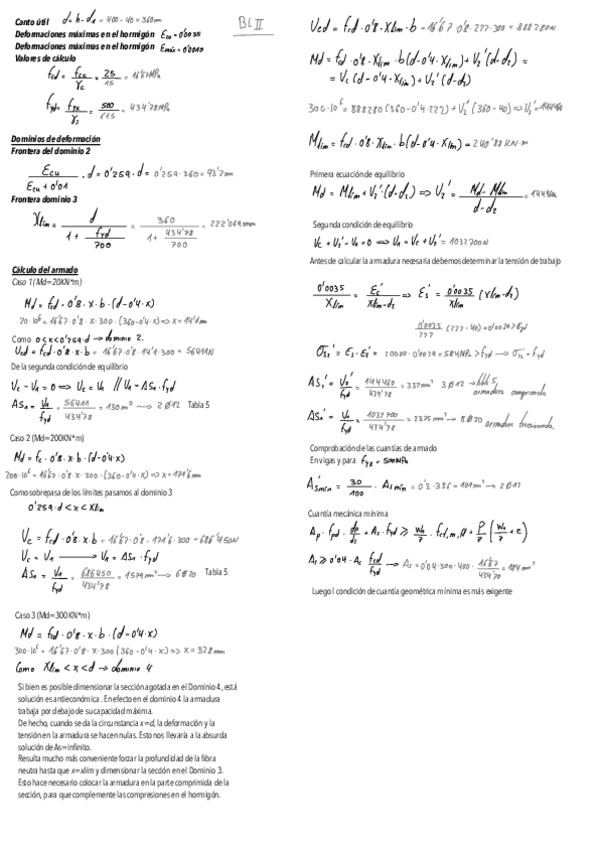 Canto útil d = h - d₁ = 400 - 40 = 360mm BL II
Deformaciones máximas en el hormigón Ecu = 0'0035
Deformaciones máximas en el hormigón
Valores de cálculo
fcd = fck / γc = 25 / 1'5 = 16'67MPa
fyd = fyk / γs = 500 / 1'15 = 434'78MPa
Dominios de deformación
Frontera del dominio 2
Ecu / (Ecu + 0'01) · d = 0'259 · d = 0'259 · 360 = 43'2mm
Frontera dominio 3
Xlim = d / (1 + fyd / 700) = 360 / (1 + 434'78 / 700) = 222'069mm
Cálculo del armado
Caso 1 (Md=20KN*m)
Md = fcd · 0'8 · x · b · (d - 0'4 · x)
20·10⁶ = 16'67 · 0'8 · x · 300 · (360 - 0'4·x) => x = 14'1mm
Como 0 < x < 0'259·d → dominio 2.
Ucd = fcd · 0'8 · x · b = 16'67 · 0'8 · 14'1 · 300 = 56411N
De la segunda condición de equilibrio
Uc - U₁ = 0 => Uc = U₁ // U₁ = AS₁ · fyd
AS₁ = U₁ / fyd = 56411 / 434'78 = 130mm² → 2Ø12 Tabla 5
Caso 2 (Md=200KN*m)
Md = fc · 0'8 · x · b · (d - 0'4x)
200·10⁶ = 16'67 · 0'8 · x · 300 · (360 - 0'4·x) => x = 171'6mm
Como sobrepasa de los límites pasamos al dominio 3
0'259 · d < x < Xlim
Uc = fcd · 0'8 · x · b = 16'67 · 0'8 · 171'6 · 300 = 686'450N
Uc = U₁ → U₁ = AS₁ · fyd
AS₁ = U₁ / fyd = 686450 / 434'78 = 1579mm² → 6Ø20 Tabla 5
Caso 3 (Md=300KN*m)
Md = fcd · 0'8 · x · b · (d - 0'4·x)
300·10⁶ = 16'67 · 0'8 · x · 300 (360 - 0'4·x) => x = 328mm
Como Xlim < x < d → dominio 4
Si bien es posible dimensionar la sección agotada en el Dominio 4, está
solución es antieconómica . En efecto en el dominio 4 la armadura
trabaja por debajo de su capacidad máxima.
De hecho, cuando se da la circunstancia x=d, la deformación y la
tensión en la armadura se hacen nulas. Esto nos llevaría a la absurda
solución de As=infinito.
Resulta mucho más conveniente forzar la profundidad de la fibra
neutra hasta que x=xlim y dimensionar la sección en el Dominio 3.
Esto hace necesario colocar la armadura en la parte comprimida de la
sección, para que complemente las compresiones en el hormigón.
Ucd = fcd · 0'8 · Xlim · b = 16'67 · 0'8 · 222 · 300 = 888280N
Md = fcd · 0'8 · Xlim · b(d - 0'4 · Xlim) + U₂'(d - d₂) =
= Uc (d - 0'4 · Xlim) + U₂'(d - d₂)
300·10⁶ = 888280 (360 - 0'4·222) + U₂' (360 - 40) => U₂' =
Mlim = fcd · 0'8 · Xlim · b(d - 0'4 · Xlim) = 240'88KN·m
Primera ecuación de equilibrio
Md = Mlim + U₂' · (d - d₂) => U₂' = (Md - Mlim) / (d - d₂) =
Segunda condición de equilibrio
Uc + U₂' - U₁ = 0 => U₁ = Uc + U₂' = 1032700N
Antes de calcular la armadura necesaria debemos determinar la tensión de trabajo
0'0035 / Xlim = Es' / (Xlim - d₂) => Es' = 0'0035 / Xlim (Xlim - d₂)
0'0035 / 222 (222 - 40) = 0'0029 > Eyd
= Es · Es' = = 584MPa > fyd → = fyd
AS₂' = U₂' / fyd = / 434'78 = mm² 3Ø12 → tabla 5 armadura comprimida
AS₁' = U₁ / fyd = 1032700 / 434'78 = 2375mm² → 8Ø20 armadura traccionada
Comprobación de las cuantías de armado
En vigas y para fyk = 500MPa
A'smín = 30 / 100 · Asmín = 0'3 · 336 = 101mm² → 2Ø12
Cuantía mecánica mínima
Ap · fpd · dp / ds + As · fyd ≥ W₁ / z · fct,m,fl + P / z (W₁ / + e)
As ≥ 0'04 · Ac fcd / fyd → As = 0'04 · 300 · 400 · 16'67 / 434'78 = 184mm²
Luego l condición de cuantía geométrica mínima es más exigente